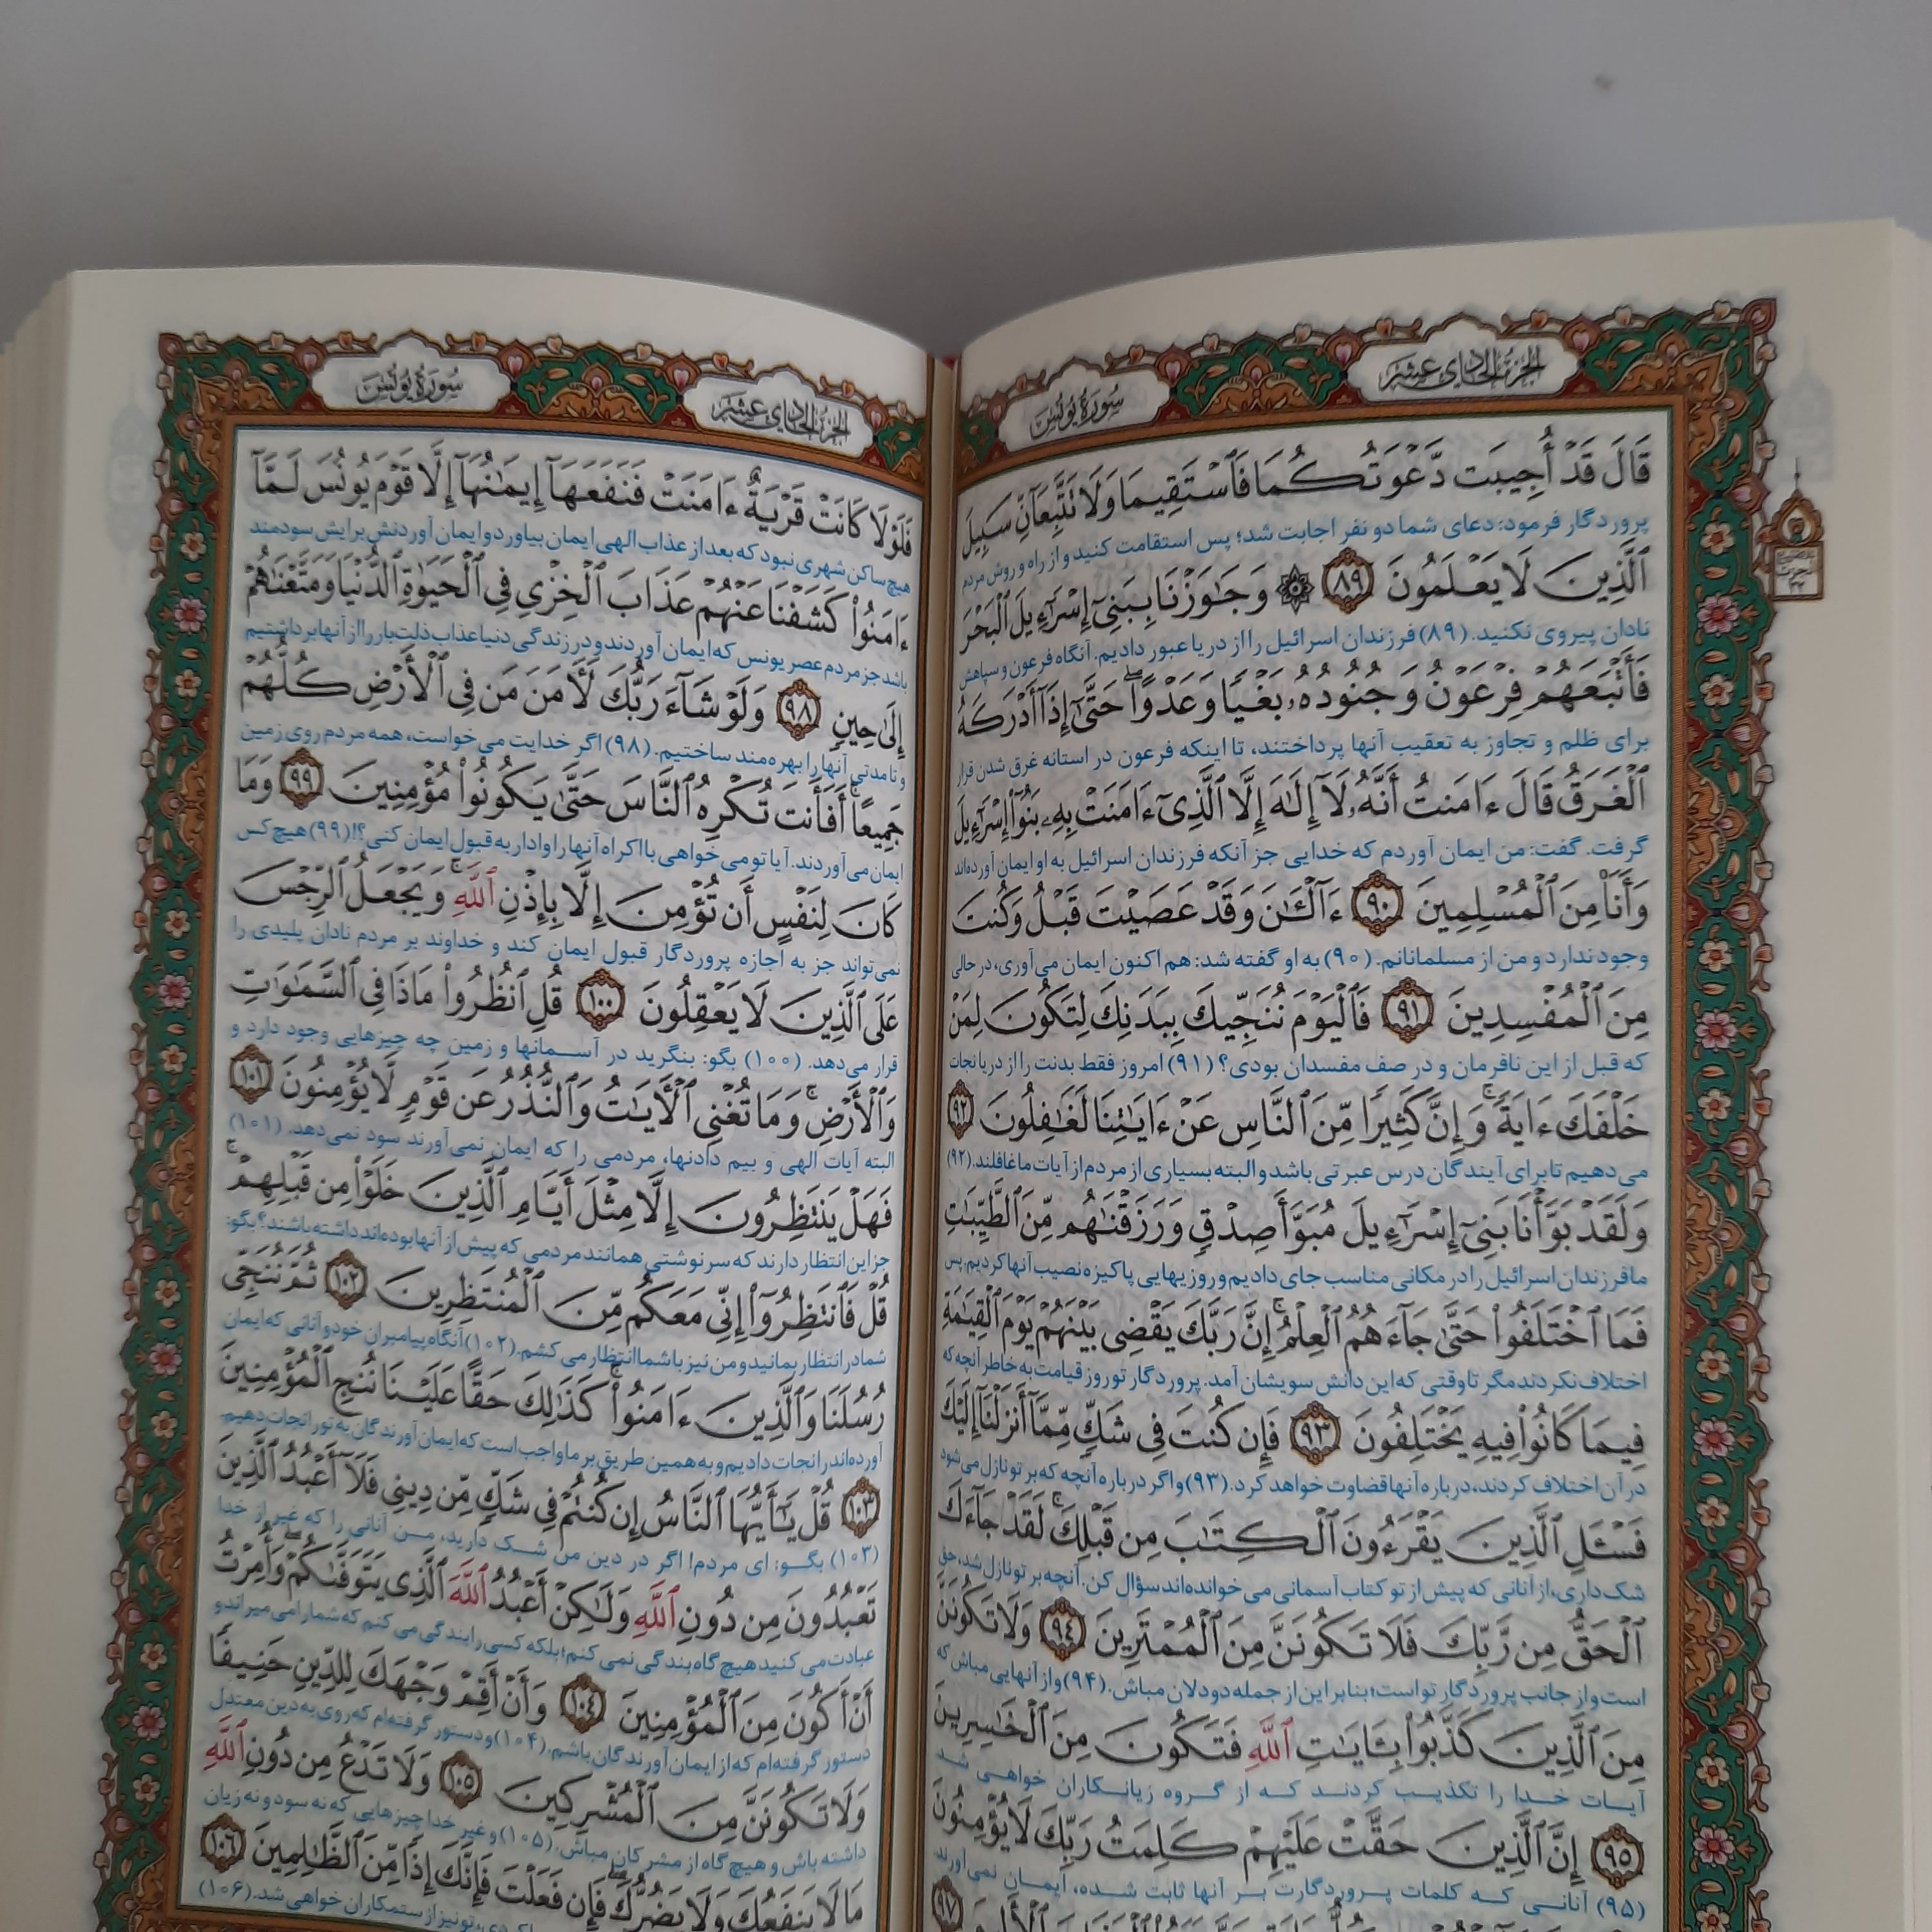 الجزء الحادي عشر
سورة يونس
قَالَ قَدْ أُجِيبَت دَّعْوَتُكُمَا فَٱسْتَقِيمَا وَلَا تَتَّبِعَآنِّ سَبِيلَ
پروردگار فرمود: دعای شما دو نفر اجابت شد؛ پس استقامت کنید و از راه و روش مردم
ٱلَّذِينَ لَا يَعْلَمُونَ ۝٨٩ ۞ وَجَٰوَزْنَا بِبَنِىٓ إِسْرَٰٓءِيلَ ٱلْبَحْرَ
نادان پیروی نکنید. (۸۹) فرزندان اسرائیل را از دریا عبور دادیم. آنگاه فرعون و سپاهش
فَأَتْبَعَهُمْ فِرْعَوْنُ وَجُنُودُهُۥ بَغْيًا وَعَدْوًا ۖ حَتَّىٰٓ إِذَآ أَدْرَكَهُ
برای ظلم و تجاوز به تعقیب آنها پرداختند، تا اینکه فرعون در استانه غرق شدن قرار
ٱلْغَرَقُ قَالَ ءَامَنتُ أَنَّهُۥ لَآ إِلَٰهَ إِلَّا ٱلَّذِىٓ ءَامَنَتْ بِهِۦ بَنُوٓا۟ إِسْرَٰٓءِيلَ
گرفت. گفت: من ایمان آوردم که خدایی جز آنکه فرزندان اسرائیل به او ایمان آورده‌اند
وَأَنَا۠ مِنَ ٱلْمُسْلِمِينَ ۝٩٠ ءَآلْـَٰٔنَ وَقَدْ عَصَيْتَ قَبْلُ وَكُنتَ
وجود ندارد و من از مسلمانانم. (۹۰) به او گفته شد: هم اکنون ایمان می‌آوری، در حالی
مِنَ ٱلْمُفْسِدِينَ ۝٩١ فَٱلْيَوْمَ نُنَجِّيكَ بِبَدَنِكَ لِتَكُونَ لِمَنْ
که قبل از این نافرمان و در صف مفسدان بودی؟ (۹۱) امروز فقط بدنت را از دریا نجات
خَلْفَكَ ءَايَةً ۚ وَإِنَّ كَثِيرًا مِّنَ ٱلنَّاسِ عَنْ ءَايَٰتِنَا لَغَٰفِلُونَ ۝٩٢
می‌دهیم تا برای آیندگان درس عبرتی باشد و البته بسیاری از مردم از آیات ما غافلند. (۹۲)
وَلَقَدْ بَوَّأْنَا بَنِىٓ إِسْرَٰٓءِيلَ مُبَوَّأَ صِدْقٍ وَرَزَقْنَٰهُم مِّنَ ٱلطَّيِّبَٰتِ
ما فرزندان اسرائیل را در مکانی مناسب جای دادیم و روزیهایی پاکیزه نصیب آنها کردیم. پس
فَمَا ٱخْتَلَفُوا۟ حَتَّىٰ جَآءَهُمُ ٱلْعِلْمُ ۚ إِنَّ رَبَّكَ يَقْضِى بَيْنَهُمْ يَوْمَ ٱلْقِيَٰمَةِ
اختلاف نکردند مگر تا وقتی که این دانش سویشان آمد. پروردگار تو روز قیامت به خاطر آنچه که
فِيمَا كَانُوا۟ فِيهِ يَخْتَلِفُونَ ۝٩٣ فَإِن كُنتَ فِى شَكٍّ مِّمَّآ أَنزَلْنَآ إِلَيْكَ
در آن اختلاف کردند، درباره آنها قضاوت خواهد کرد. (۹۳) و اگر درباره آنچه که بر تو نازل می‌شود
فَسْـَٔلِ ٱلَّذِينَ يَقْرَءُونَ ٱلْكِتَٰبَ مِن قَبْلِكَ ۚ لَقَدْ جَآءَكَ
شک داری، از آنانی که پیش از تو کتاب آسمانی می‌خوانده‌اند سؤال کن. آنچه بر تو نازل شد، حق
ٱلْحَقُّ مِن رَّبِّكَ فَلَا تَكُونَنَّ مِنَ ٱلْمُمْتَرِينَ ۝٩٤ وَلَا تَكُونَنَّ
است و از جانب پروردگار تو است؛ بنابراین از جمله دودلان مباش. (۹۴) و از آنهایی مباش که
مِنَ ٱلَّذِينَ كَذَّبُوا۟ بِـَٔايَٰتِ ٱللَّهِ فَتَكُونَ مِنَ ٱلْخَٰسِرِينَ
آیات خدا را تکذیب کردند که از گروه زیانکاران خواهی شد
۝٩٥ إِنَّ ٱلَّذِينَ حَقَّتْ عَلَيْهِمْ كَلِمَتُ رَبِّكَ لَا يُؤْمِنُونَ
(۹۵) آنانی که کلمات پروردگارت بر آنها ثابت شده، ایمان نمی‌آورند
۝٩٧
سورة يونس
الجزء الحادي عشر
فَلَوْلَا كَانَتْ قَرْيَةٌ ءَامَنَتْ فَنَفَعَهَآ إِيمَٰنُهَآ إِلَّا قَوْمَ يُونُسَ لَمَّآ
هیچ ساکن شهری نبود که بعد از عذاب الهی ایمان بیاورد و ایمان آوردنش برایش سودمند
ءَامَنُوا۟ كَشَفْنَا عَنْهُمْ عَذَابَ ٱلْخِزْىِ فِى ٱلْحَيَوٰةِ ٱلدُّنْيَا وَمَتَّعْنَٰهُمْ
باشد جز مردم عصر یونس که ایمان آوردند و در زندگی دنیا عذاب ذلت‌بار را از آنها برداشتیم
إِلَىٰ حِينٍ ۝٩٨ وَلَوْ شَآءَ رَبُّكَ لَـَٔامَنَ مَن فِى ٱلْأَرْضِ كُلُّهُمْ
و تا مدتی آنها را بهره‌مند ساختیم. (۹۸) اگر خدایت می‌خواست، همه مردم روی زمین
جَمِيعًا ۚ أَفَأَنتَ تُكْرِهُ ٱلنَّاسَ حَتَّىٰ يَكُونُوا۟ مُؤْمِنِينَ ۝٩٩ وَمَا
ایمان می‌آوردند. آیا تو می خواهی با اکراه آنها را وادار به قبول ایمان کنی؟! (۹۹) هیچ کس
كَانَ لِنَفْسٍ أَن تُؤْمِنَ إِلَّا بِإِذْنِ ٱللَّهِ ۚ وَيَجْعَلُ ٱلرِّجْسَ
نمی‌تواند جز به اجازه پروردگار قبول ایمان کند و خداوند بر مردم نادان پلیدی را
عَلَى ٱلَّذِينَ لَا يَعْقِلُونَ ۝١٠٠ قُلِ ٱنظُرُوا۟ مَاذَا فِى ٱلسَّمَٰوَٰتِ
قرار می‌دهد. (۱۰۰) بگو: بنگرید در آسمانها و زمین چه چیزهایی وجود دارد و
وَٱلْأَرْضِ ۚ وَمَا تُغْنِى ٱلْـَٔايَٰتُ وَٱلنُّذُرُ عَن قَوْمٍ لَّا يُؤْمِنُونَ ۝١٠١
البته آیات الهی و بیم دادنها، مردمی را که ایمان نمی‌آورند سود نمی‌دهد. (۱۰۱)
فَهَلْ يَنتَظِرُونَ إِلَّا مِثْلَ أَيَّامِ ٱلَّذِينَ خَلَوْا۟ مِن قَبْلِهِمْ ۚ
جز این انتظار دارند که سرنوشتی همانند مردمی که پیش از آنها بوده‌اند داشته باشند؟ بگو:
قُلْ فَٱنتَظِرُوٓا۟ إِنِّى مَعَكُم مِّنَ ٱلْمُنتَظِرِينَ ۝١٠٢ ثُمَّ نُنَجِّى
شما در انتظار بمانید و من نیز با شما انتظار می کشم. (۱۰۲) آنگاه پیامبران خود و آنانی که ایمان
رُسُلَنَا وَٱلَّذِينَ ءَامَنُوا۟ ۚ كَذَٰلِكَ حَقًّا عَلَيْنَا نُنجِ ٱلْمُؤْمِنِينَ
آورده‌اند را نجات دادیم و به همین طریق بر ما واجب است که ایمان آورندگان به تو را نجات دهیم.
۝١٠٣ قُلْ يَٰٓأَيُّهَا ٱلنَّاسُ إِن كُنتُمْ فِى شَكٍّ مِّن دِينِى فَلَآ أَعْبُدُ ٱلَّذِينَ
(۱۰۳) بگو: ای مردم! اگر در دین من شک دارید، من آنانی را که غیر از خدا
تَعْبُدُونَ مِن دُونِ ٱللَّهِ وَلَٰكِنْ أَعْبُدُ ٱللَّهَ ٱلَّذِى يَتَوَفَّىٰكُمْ ۖ وَأُمِرْتُ
عبادت می کنید هیچ گاه بندگی نمی کنم؛ بلکه کسی را بندگی می کنم که شما را می‌میراند و
أَنْ أَكُونَ مِنَ ٱلْمُؤْمِنِينَ ۝١٠٤ وَأَنْ أَقِمْ وَجْهَكَ لِلدِّينِ حَنِيفًا
دستور گرفته‌ام که از ایمان آورندگان باشم. (۱۰۴) و دستور گرفته‌ام که روی به دین معتدل
وَلَا تَكُونَنَّ مِنَ ٱلْمُشْرِكِينَ ۝١٠٥ وَلَا تَدْعُ مِن دُونِ ٱللَّهِ
داشته باش و هیچ گاه از مشرکان مباش. (۱۰۵) و غیر خدا چیزهایی که نه سود و نه زیان
مَا لَا يَنفَعُكَ وَلَا يَضُرُّكَ ۖ فَإِن فَعَلْتَ فَإِنَّكَ إِذًا مِّنَ ٱلظَّٰلِمِينَ ۝١٠٦
تو نیز از ستمکاران خواهی شد. (۱۰۶)